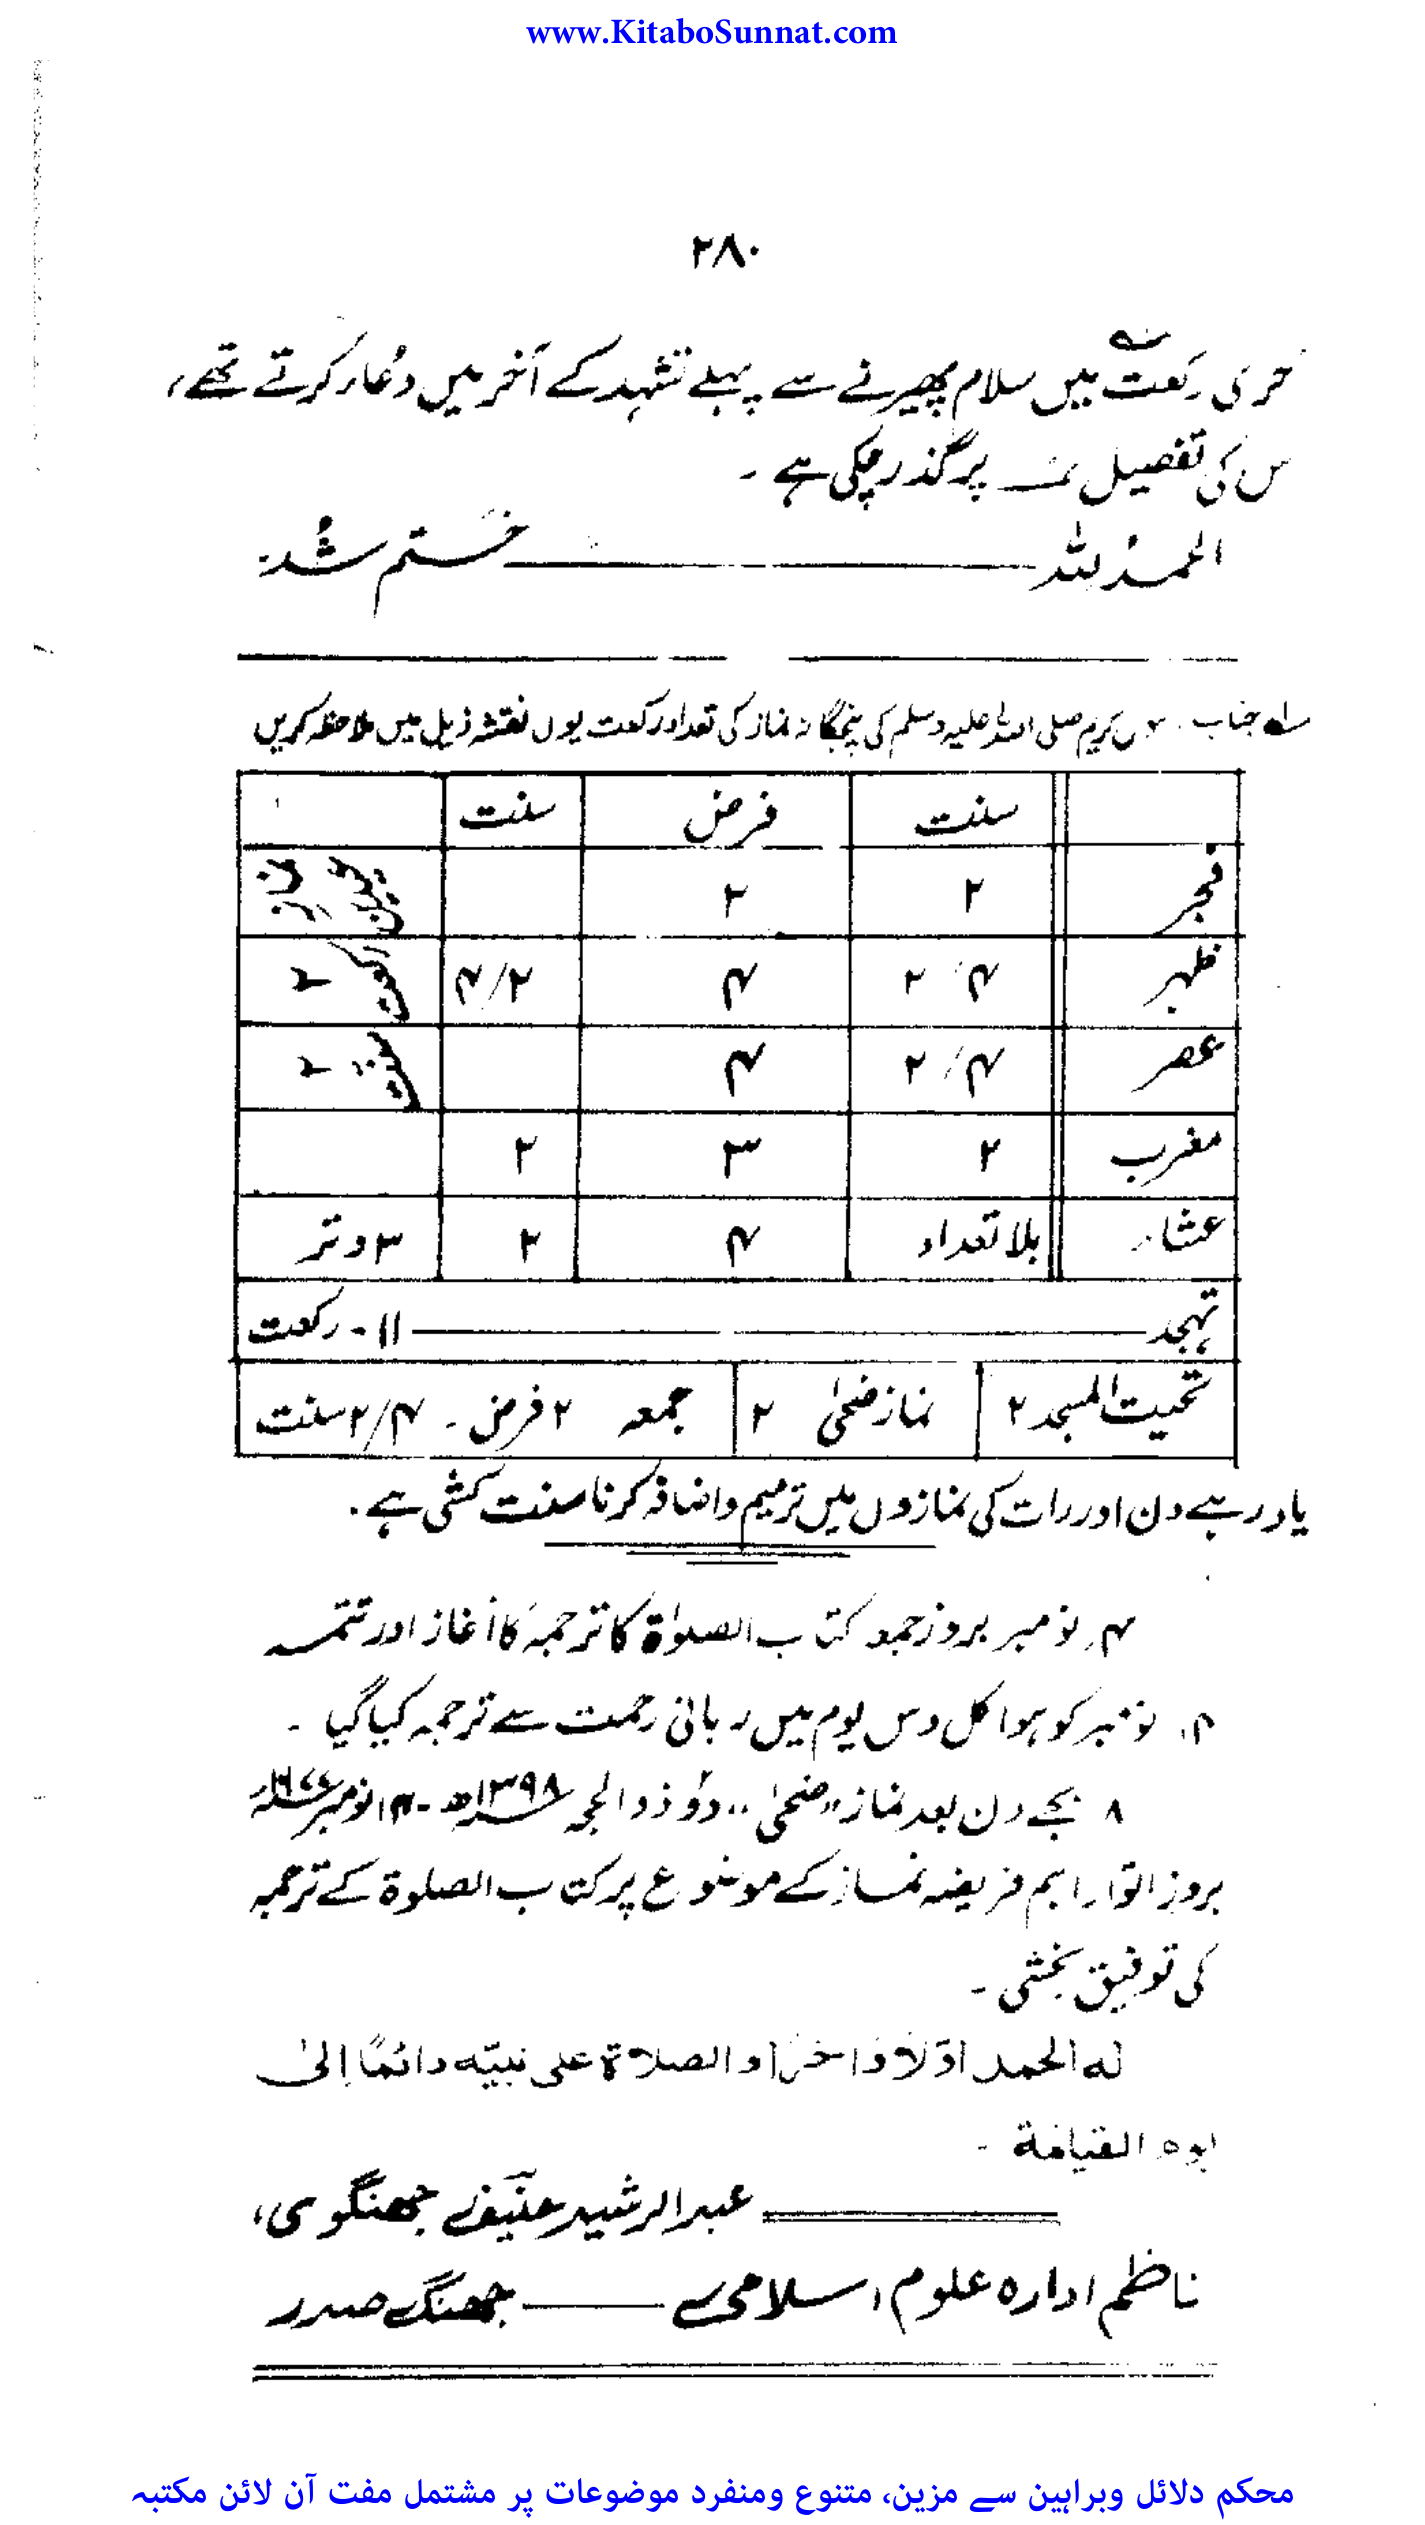 www.KitaboSunnat.com
۲۸۰
خری رکعت میں سلام پھیرنے سے پہلے تشہد کے آخر میں دُعاء کرتے تھے،
س کی تفصیل پر گذر چکی ہے ۔
الحمدُ للہ ختم شُد
لہ جناب کریم صلی اللہ علیہ وسلم کی پنجگانہ نماز کی تعداد رکعت یوں نقشہ ذیل میں ملاحظہ کریں
سنت فرض سنت
فجر ۲ ۲
ظہر ۴/۲ ۴ ۲/۴ رکعت ۲
عصر ۴/۲ ۴ سنت ۲
مغرب ۲ ۳ ۲
عشاء بلا تعداد ۴ ۲ ۳ وتر
تہجد ۱۱ - رکعت
تحیت المسجد ۲ نماز ضحیٰ ۲ جمعہ ۲ فرض - ۴/۲ سنت
یاد رہے دن اور رات کی نمازوں میں ترمیم و اضافہ کرنا سنت کشی ہے ۔
۴، نومبر بروز جمعہ کتاب الصلوٰۃ کا ترجمہ کا آغاز اور تتمہ
نومبر کو ہوا کل دس یوم میں ربانی رحمت سے ترجمہ کیا گیا ۔
۸ بجے دن بعد نماز "ضحیٰ" دو ذوالحجہ ۱۳۹۸ھ - نومبر ۱۹۷۷ء
بروز اتوار اہم فریضہ نماز کے موضوع پر کتاب الصلوۃ کے ترجمہ
کی توفیق بخشی ۔
له الحمد اوّلاً واٰخراً والصلاة على نبيّه دائمًا إلىٰ
يوم القيامة ۔
عبدالرشید حنیف جھنگوی،
ناظم ادارہ علوم اسلامی جھنگ صدر
محکم دلائل وبراہین سے مزین، متنوع ومنفرد موضوعات پر مشتمل مفت آن لائن مکتبہ